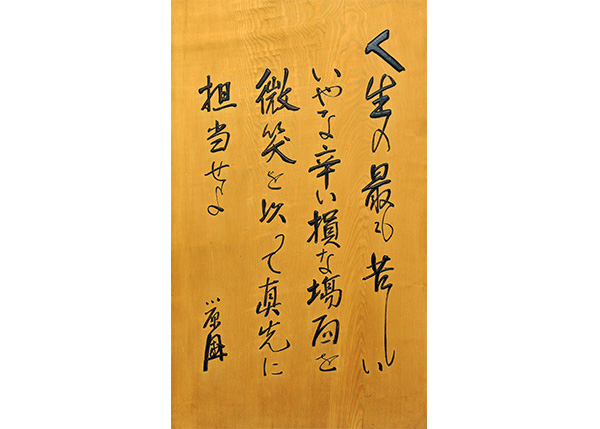 人生の最も苦しい
いやな辛い損な場面を
微笑を以って真先に
担当せよ
小原國